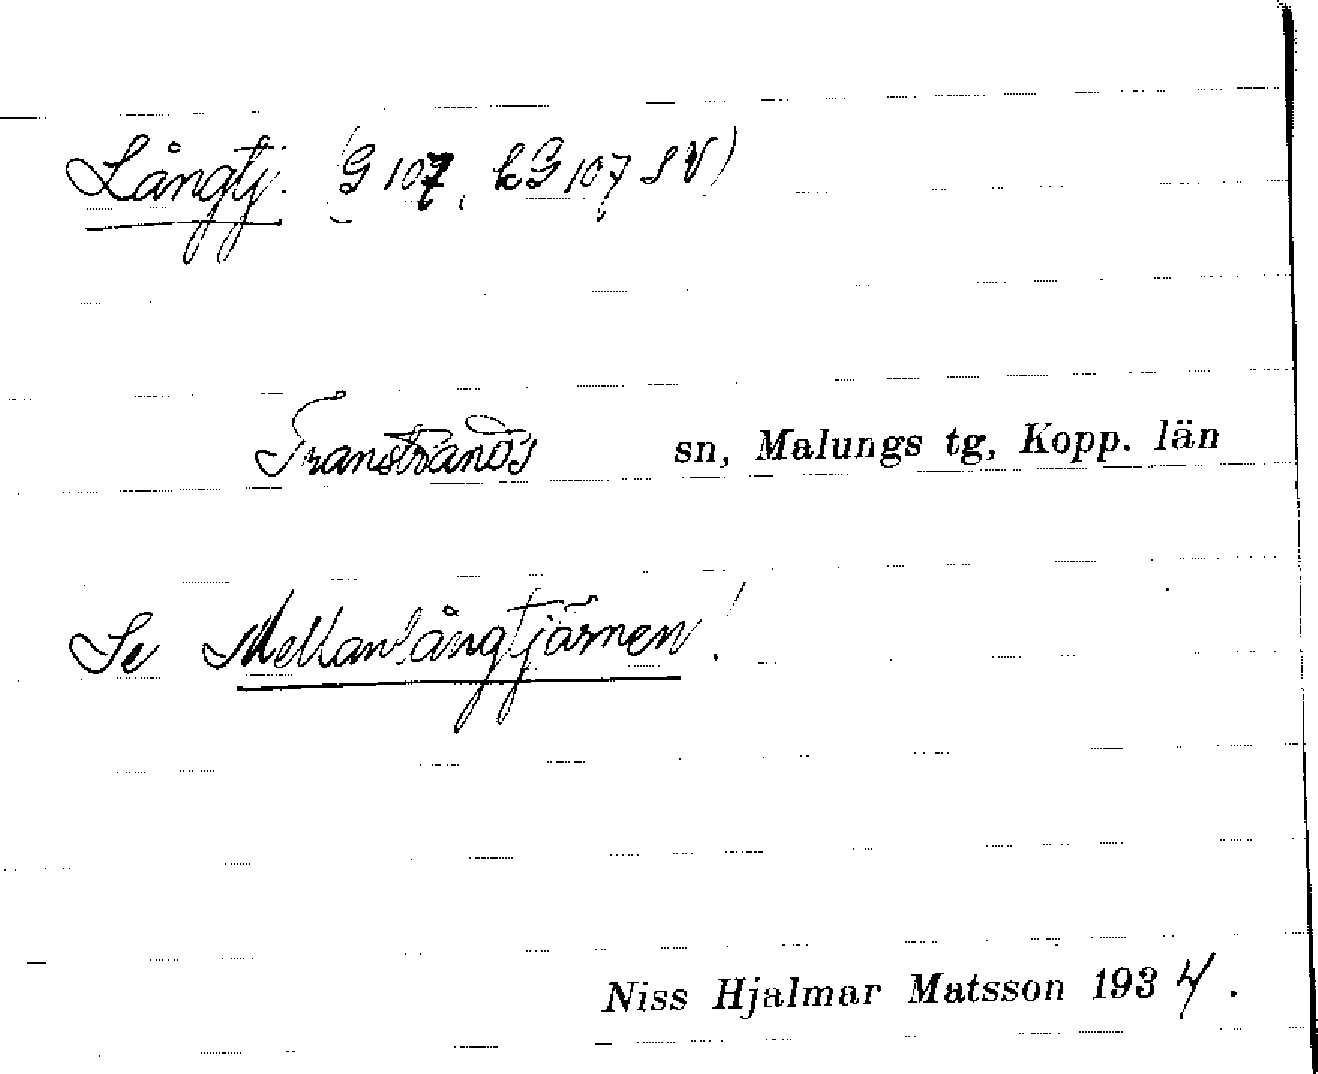 Långtj. (G 107, kG 107 SV)
Transtrands sn, Malungs tg, Kopp. län
Se Mellanlångtjärnen!
Niss Hjalmar Matsson 1934.